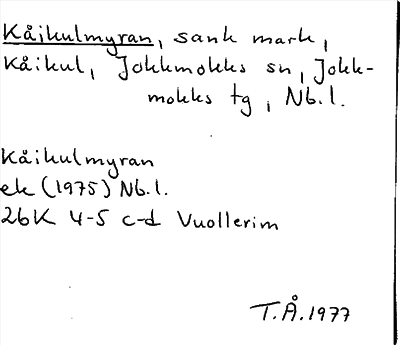 Kåikulmyran, sank mark,
Kåikul, Jokkmokks sn, Jokk-
mokks tg, Nb.l.
Kåikulmyran
ek (1975) Nb.l.
26K 4-5 c-d Vuollerim
T.Å.1977